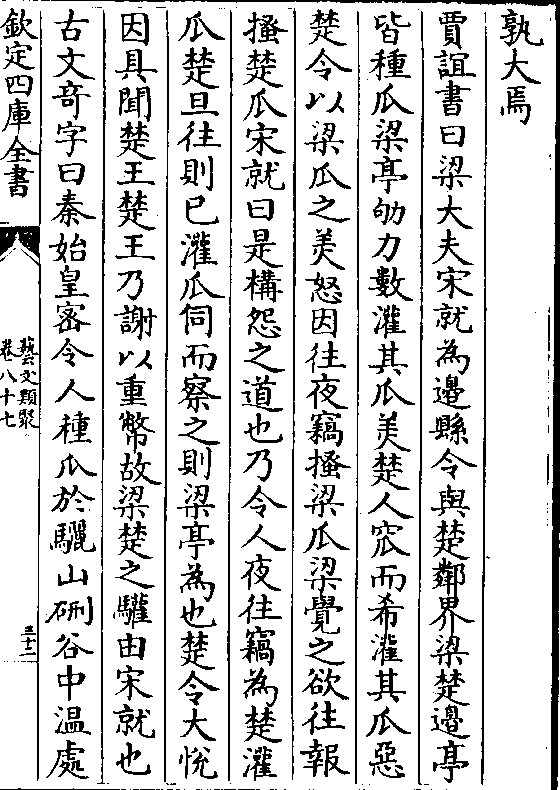 孰大焉
賈誼書曰梁大夫宋就為邉縣令與楚鄰界梁楚邉亭
皆種瓜梁亭劬力數灌其瓜美楚人窳而希灌其瓜惡
楚令以梁瓜之美怒因往夜竊搔梁瓜梁覺之欲往報
搔楚瓜宋就曰是構怨之道也乃令人夜往竊為楚灌
瓜楚旦往則已灌瓜伺而察之則梁亭為也楚令大悅
因具聞楚王楚王乃謝以重幣故梁楚之驩由宋就也
古文竒字曰秦始皇宻令人種瓜於驪山硎谷中温處
欽定四庫全書
藝文類聚
卷八十七
三十二